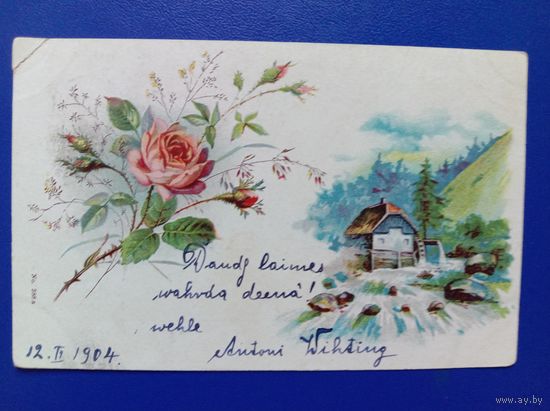 Daudz laimes
wahrda deenâ!
wehle
12. II 1904. Antoni Wihting
www.ay.by